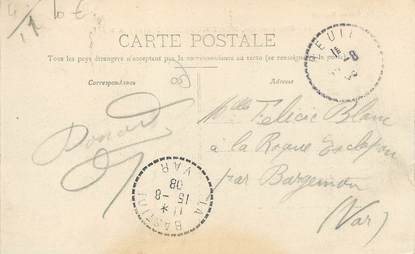 10 €
CARTE POSTALE
Tous les pays étrangers n'acceptent pas la correspondance au recto (se renseigner à la poste)
Correspondance
Adresse
Mlle Félicie Blanc
à la Roque Esclapon
par Bargemon
(Var)
LA BASTIDE
11
15 -8
08
VAR